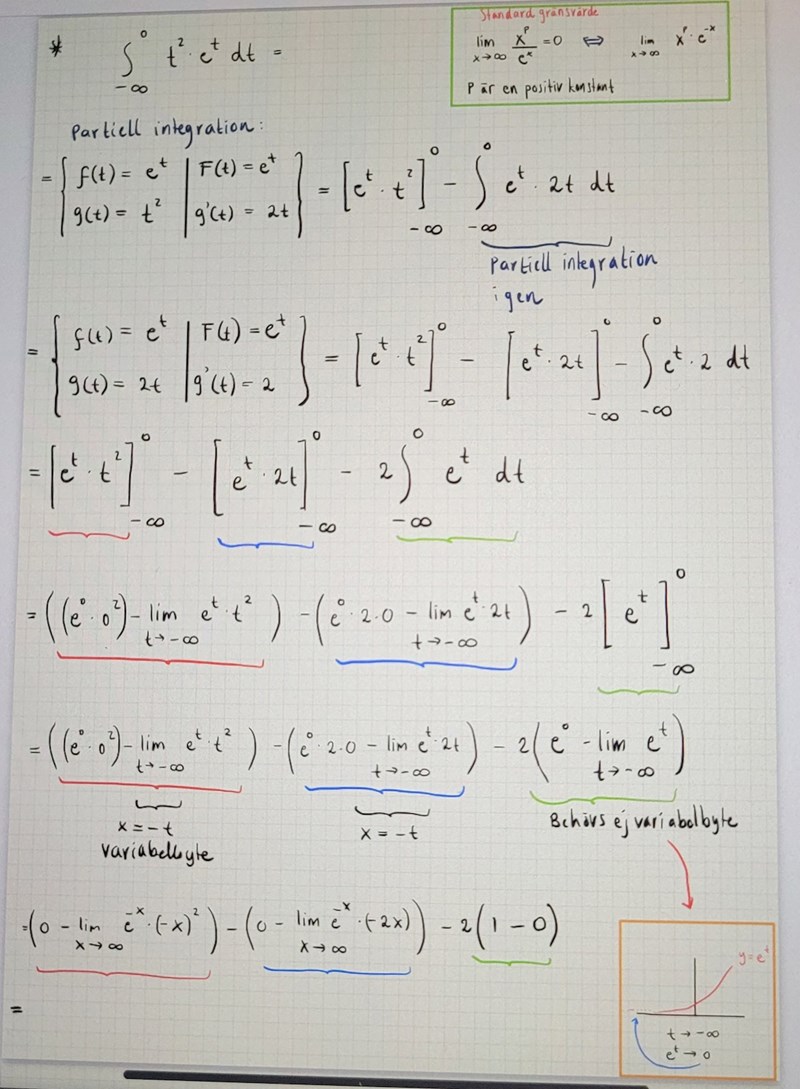 Standard gränsvärde
lim x→∞ x^p/e^x = 0 ⇔ lim x→∞ x^p · e^-x
P är en positiv konstant
* ∫_-∞^0 t² · e^t dt =
Partiell integration:
= { f(t) = e^t | F(t) = e^t
g(t) = t² | g'(t) = 2t } = [e^t · t²]_-∞^0 - ∫_-∞^0 e^t · 2t dt
Partiell integration
igen
= { f(t) = e^t | F(t) = e^t
g(t) = 2t | g'(t) = 2 } = [e^t · t²]_-∞^0 - [e^t · 2t]_-∞^0 - ∫_-∞^0 e^t · 2 dt
= [e^t · t²]_-∞^0 - [e^t · 2t]_-∞^0 - 2 ∫_-∞^0 e^t dt
= ((e^0 · 0²) - lim t→-∞ e^t · t²) - (e^0 · 2·0 - lim t→-∞ e^t · 2t) - 2 [e^t]_-∞^0
= ((e^0 · 0²) - lim t→-∞ e^t · t²) - (e^0 · 2·0 - lim t→-∞ e^t · 2t) - 2(e^0 - lim t→-∞ e^t)
x = -t
variabelbyte
x = -t
Behövs ej variabelbyte
= (0 - lim x→∞ e^-x · (-x)²) - (0 - lim x→∞ e^-x · (-2x)) - 2(1 - 0)
y = e^t
t → -∞
e^t → 0
=